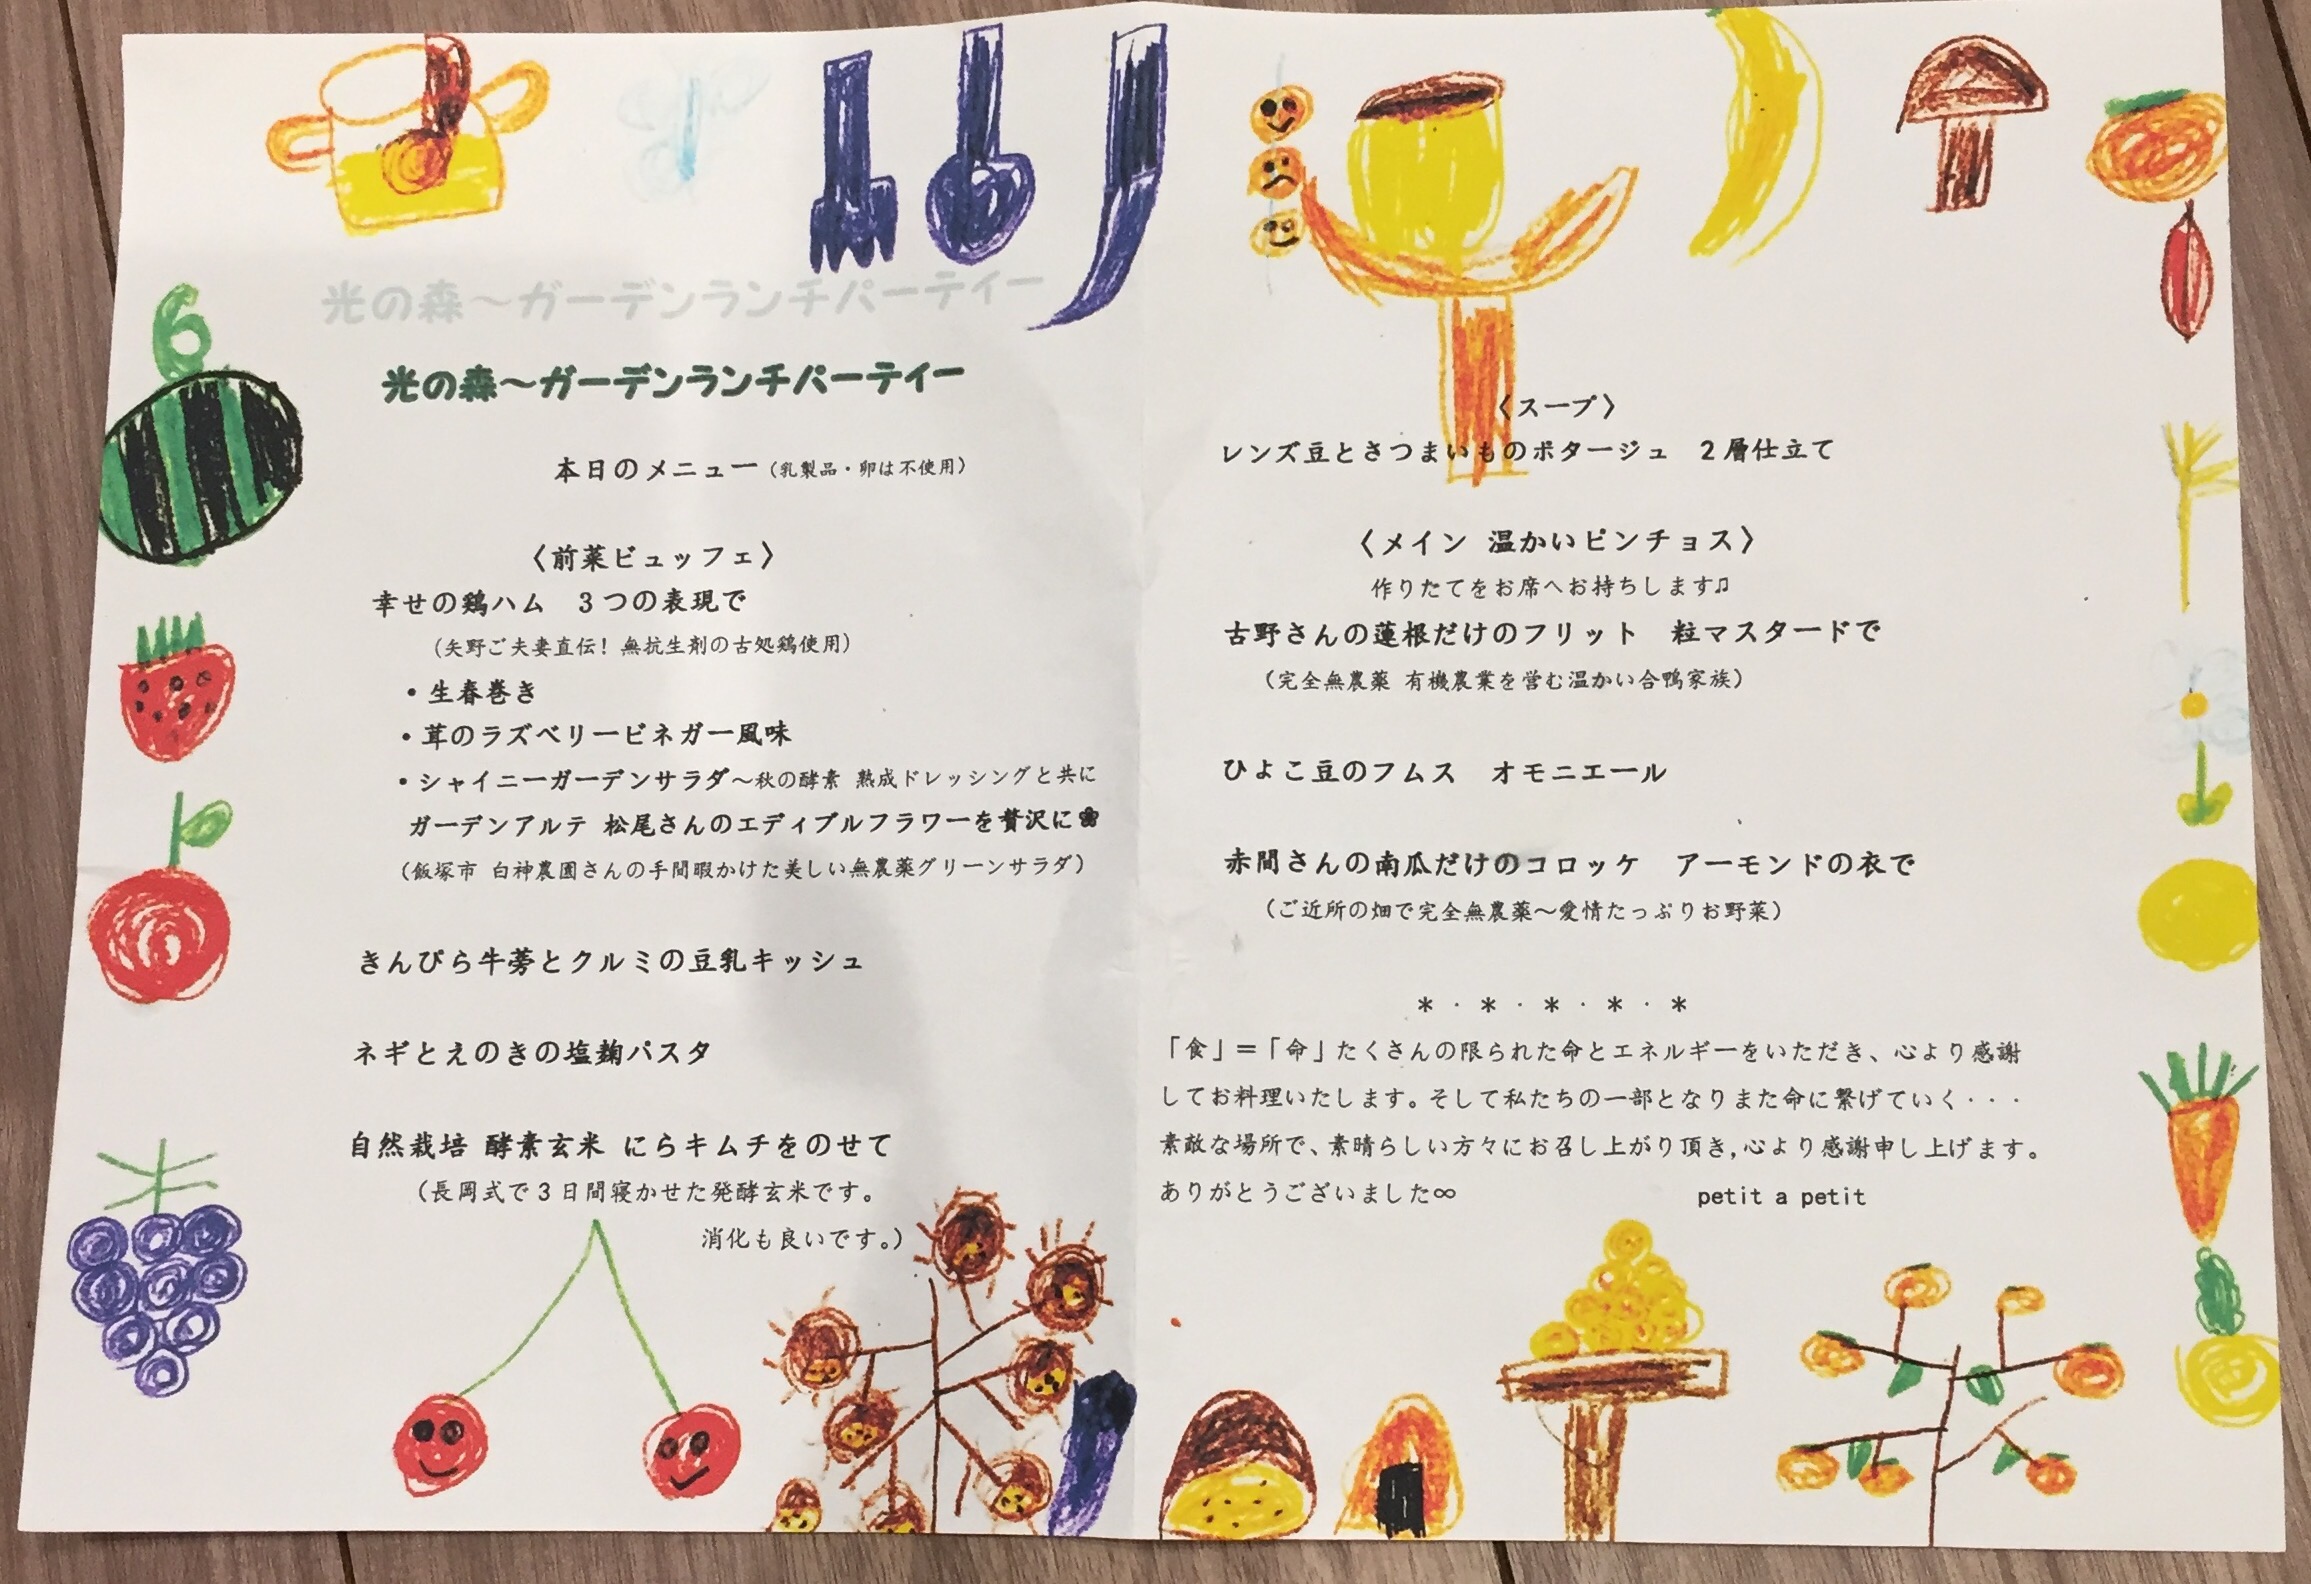 光の森～ガーデンランチパーティー
光の森～ガーデンランチパーティー
本日のメニュー（乳製品・卵は不使用）
〈前菜ビュッフェ〉
幸せの鶏ハム　３つの表現で
（矢野ご夫妻直伝！無抗生剤の古処鶏使用）
・生春巻き
・茸のラズベリービネガー風味
・シャイニーガーデンサラダ～秋の酵素 熟成ドレッシングと共に
ガーデンアルテ 松尾さんのエディブルフラワーを贅沢に❀
（飯塚市 白神農園さんの手間暇かけた美しい無農薬グリーンサラダ）
きんぴら牛蒡とクルミの豆乳キッシュ
ネギとえのきの塩麹パスタ
自然栽培 酵素玄米 にらキムチをのせて
（長岡式で３日間寝かせた発酵玄米です。
消化も良いです。）
〈スープ〉
レンズ豆とさつまいものポタージュ　２層仕立て
〈メイン 温かいピンチョス〉
作りたてをお席へお持ちします♫
古野さんの蓮根だけのフリット　粒マスタードで
（完全無農薬 有機農業を営む温かい合鴨家族）
ひよこ豆のフムス　オモニエール
赤間さんの南瓜だけのコロッケ　アーモンドの衣で
（ご近所の畑で完全無農薬～愛情たっぷりお野菜）
＊・＊・＊・＊・＊
「食」＝「命」たくさんの限られた命とエネルギーをいただき、心より感謝
してお料理いたします。そして私たちの一部となりまた命に繋げていく・・・
素敵な場所で、素晴らしい方々にお召し上がり頂き,心より感謝申し上げます。
ありがとうございました∞　petit a petit